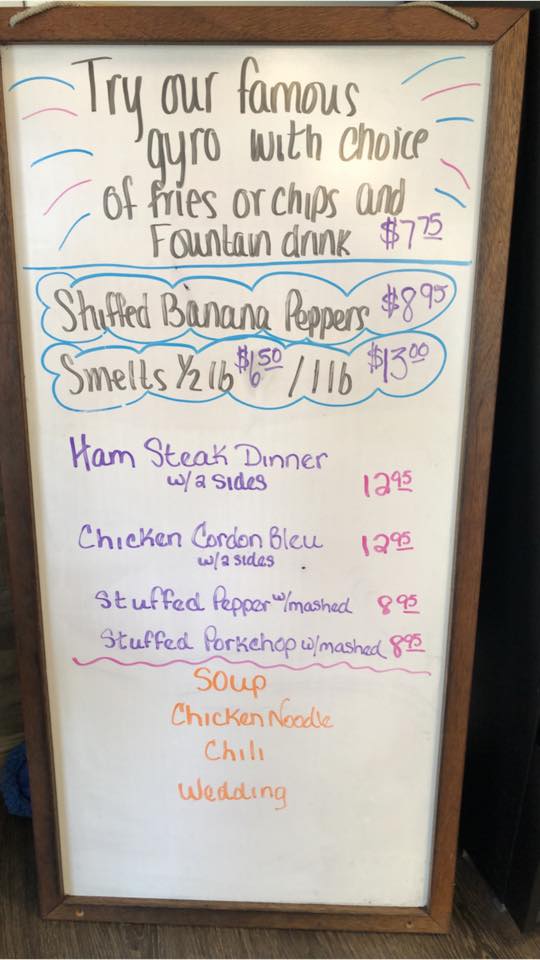 Try our famous
gyro with choice
of fries or chips and
Fountain drink $7.75
Stuffed Banana Peppers $8.95
Smelts 1/2 lb $6.50 / 1 lb $13.00
Ham Steak Dinner
w/2 sides 12.95
Chicken Cordon Bleu 12.95
w/2 sides
Stuffed Pepper w/mashed 8.95
Stuffed Porkchop w/mashed 8.95
Soup
Chicken Noodle
Chili
Wedding